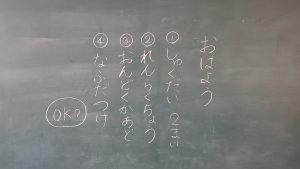 おはよう
①しゅくだい 2まい
②れんらくちょう
③おんどくかあど
④なふだつけ
OK?